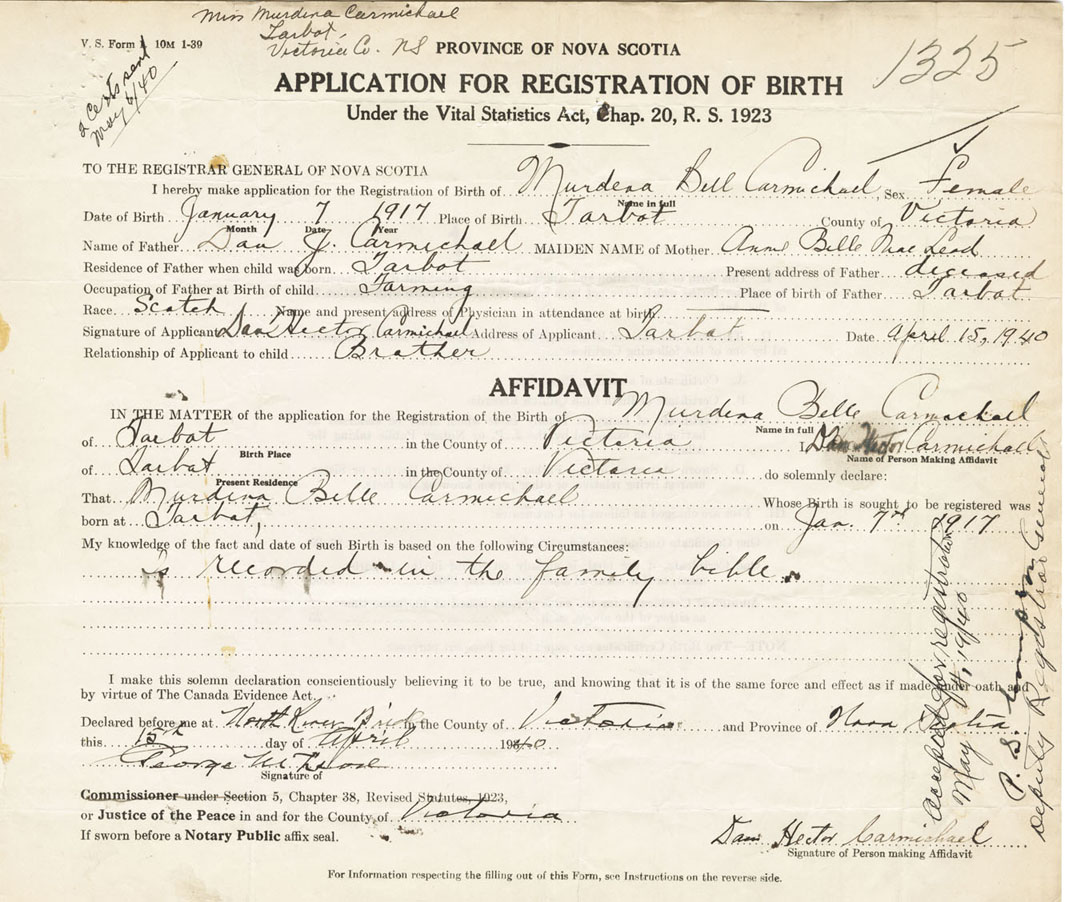 Miss Murdena Carmichael
Tarbot,
Victoria Co. NS
V. S. Form 1 10M 1-39
2 Certs sent
May 6/40
1325
PROVINCE OF NOVA SCOTIA
APPLICATION FOR REGISTRATION OF BIRTH
Under the Vital Statistics Act, Chap. 20, R. S. 1923
TO THE REGISTRAR GENERAL OF NOVA SCOTIA
I hereby make application for the Registration of Birth of Murdena Bell Carmichael, Sex, Female
Name in full
Date of Birth January 7 1917 Place of Birth Tarbot County of Victoria
Month Date Year
Name of Father Dan J. Carmichael MAIDEN NAME of Mother Annie Belle MacLeod
Residence of Father when child was born Tarbot Present address of Father deceased
Occupation of Father at Birth of child Farming Place of birth of Father Tarbot
Race Scotch Name and present address of Physician in attendance at birth
Signature of Applicant Dan Hector Carmichael Address of Applicant Tarbot Date April 15, 1940
Relationship of Applicant to child Brother
AFFIDAVIT
IN THE MATTER of the application for the Registration of the Birth of Murdena Belle Carmachael
Name in full
of Tarbot in the County of Victoria I Dan Hector Carmichael
Birth Place Name of Person Making Affidavit
of Tarbot in the County of Victoria do solemnly declare:
Present Residence
That Murdena Belle Carmichael Whose Birth is sought to be registered was
born at Tarbot, on Jan. 7th 1917
My knowledge of the fact and date of such Birth is based on the following Circumstances:
is recorded in the family bible.
I make this solemn declaration conscientiously believing it to be true, and knowing that it is of the same force and effect as if made under oath and
by virtue of The Canada Evidence Act.
Declared before me at North River Bridge in the County of Victoria and Province of Nova Scotia
this 15th day of April 1940
George
Signature of
Commissioner under Section 5, Chapter 38, Revised Statutes, 1923,
or Justice of the Peace in and for the County of Victoria
If sworn before a Notary Public affix seal.
Dan Hector Carmichael
Signature of Person making Affidavit
For Information respecting the filling out of this Form, see Instructions on the reverse side.
Accepted for registration
May 4, 1940
P. S.
Deputy Registrar General